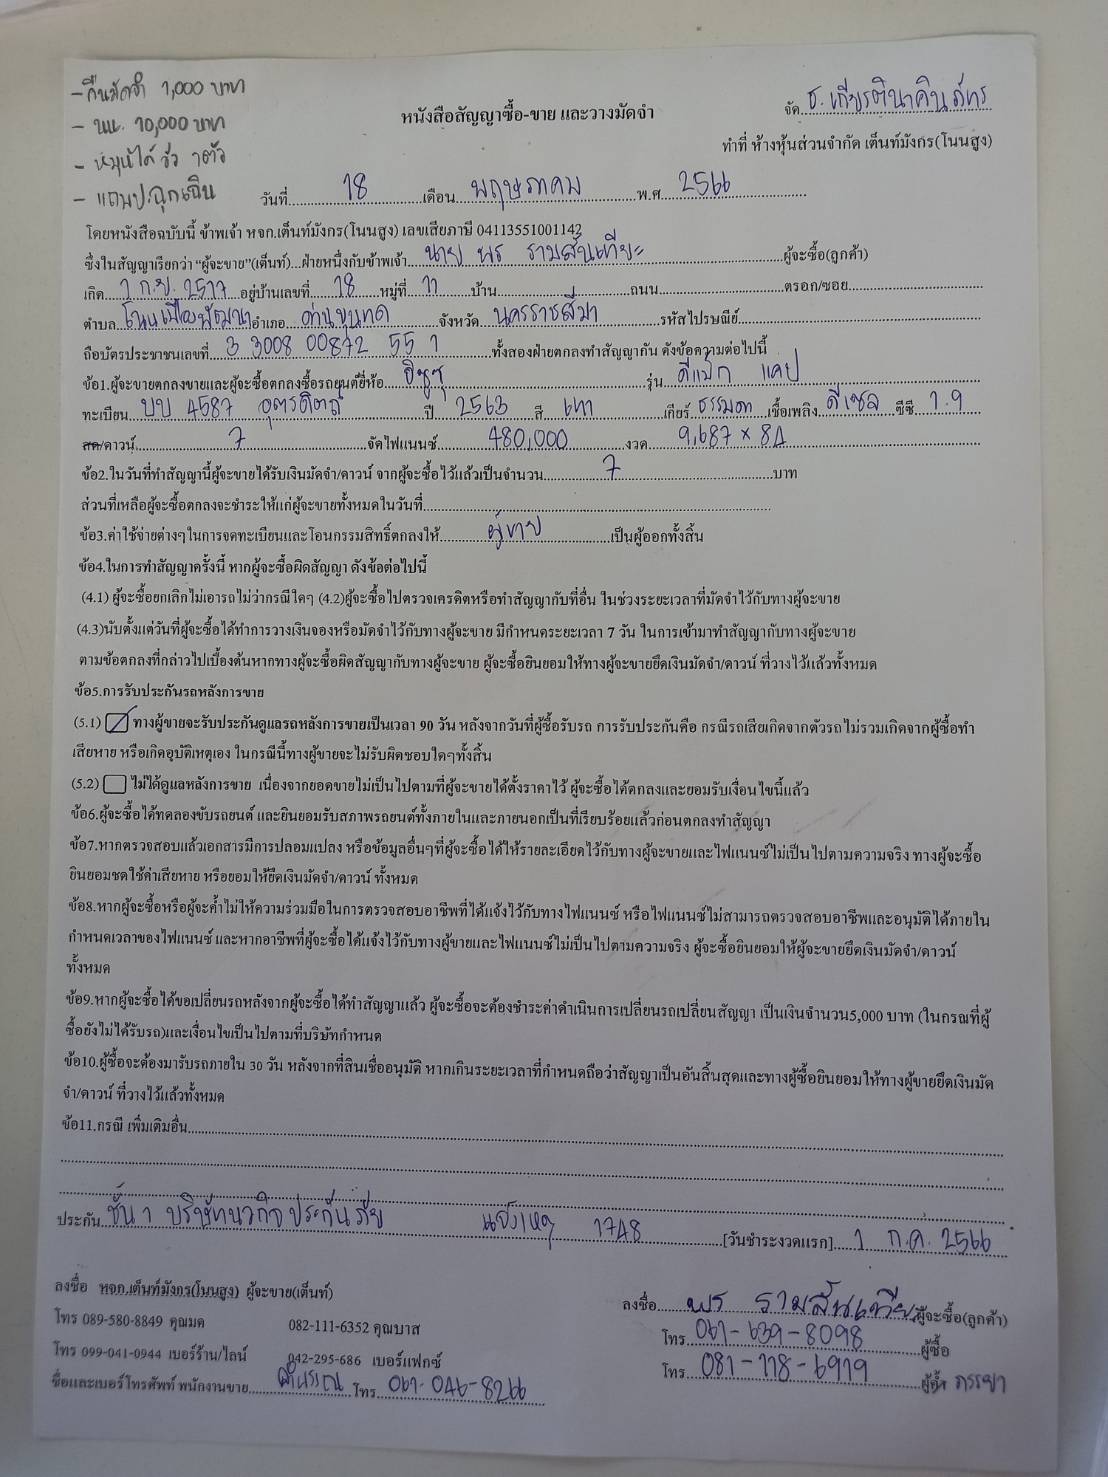 - คืนมัดจำ 1,000 บาท
- นน. 10,000 บาท
- แถมป.ฉุกเฉิน
จัด ธ. เกียรตินาคินภัทร
หนังสือสัญญาซื้อ-ขาย และวางมัดจำ
ทำที่ ห้างหุ้นส่วนจำกัด เต็นท์มังกร(โนนสูง)
วันที่ 18 เดือน พฤษภาคม พ.ศ. 2566
โดยหนังสือฉบับนี้ ข้าพเจ้า หจก.เต็นท์มังกร(โนนสูง) เลขเสียภาษี 04113551001142
ซึ่งในสัญญาเรียกว่า "ผู้จะขาย"(เต็นท์)...ฝ่ายหนึ่งกับข้าพเจ้า นาย พร รามสันเทียะ ผู้จะซื้อ(ลูกค้า)
เกิด 1 ก.ย. 2517 อยู่บ้านเลขที่ 18 หมู่ที่ 11 บ้าน ถนน ตรอก/ซอย
ตำบล โนนเมืองพัฒนา อำเภอ ด่านขุนทด จังหวัด นครราชสีมา รหัสไปรษณีย์
ถือบัตรประชาชนเลขที่ 3 3008 00872 55 1 ทั้งสองฝ่ายตกลงทำสัญญากัน ดังข้อความต่อไปนี้
ข้อ1.ผู้จะขายตกลงขายและผู้จะซื้อตกลงซื้อรถยนต์ยี่ห้อ อีซูซุ รุ่น ดีแม็ก แคป
ทะเบียน บบ 4587 อุตรดิตถ์ ปี 2563 สี เทา เกียร์ ธรรมดา เชื้อเพลิง ดีเซล ซีซี 1.9
สด/ดาวน์ 7 จัดไฟแนนซ์ 480,000 งวด 9,687 x 84
ข้อ2.ในวันที่ทำสัญญานี้ผู้จะขายได้รับเงินมัดจำ/ดาวน์ จากผู้จะซื้อไว้แล้วเป็นจำนวน 7 บาท
ส่วนที่เหลือผู้จะซื้อตกลงจะชำระให้แก่ผู้จะขายทั้งหมดในวันที่
ข้อ3.ค่าใช้จ่ายต่างๆในการจดทะเบียนและโอนกรรมสิทธิ์ตกลงให้ ผู้ขาย เป็นผู้ออกทั้งสิ้น
ข้อ4.ในการทำสัญญาครั้งนี้ หากผู้จะซื้อผิดสัญญา ดังข้อต่อไปนี้
(4.1) ผู้จะซื้อยกเลิกไม่เอารถไม่ว่ากรณีใดๆ (4.2)ผู้จะซื้อไปตรวจเครดิตหรือทำสัญญากับที่อื่น ในช่วงระยะเวลาที่มัดจำไว้กับทางผู้จะขาย
(4.3)นับตั้งแต่วันที่ผู้จะซื้อได้ทำการวางเงินจองหรือมัดจำไว้กับทางผู้จะขาย มีกำหนดระยะเวลา 7 วัน ในการเข้ามาทำสัญญากับทางผู้จะขาย
ตามข้อตกลงที่กล่าวไปเบื้องต้นหากทางผู้จะซื้อผิดสัญญากับทางผู้จะขาย ผู้จะซื้อยินยอมให้ทางผู้จะขายยึดเงินมัดจำ/ดาวน์ ที่วางไว้แล้วทั้งหมด
ข้อ5.การรับประกันรถหลังการขาย
(5.1) ทางผู้ขายจะรับประกันดูแลรถหลังการขายเป็นเวลา 90 วัน หลังจากวันที่ผู้ซื้อรับรถ การรับประกันคือ กรณีรถเสียเกิดจากตัวรถ ไม่รวมเกิดจากผู้ซื้อทำ
เสียหาย หรือเกิดอุบัติเหตุเอง ในกรณีนี้ทางผู้ขายจะไม่รับผิดชอบใดๆทั้งสิ้น
(5.2) ไม่ได้ดูแลหลังการขาย เนื่องจากยอดขายไม่เป็นไปตามที่ผู้จะขายได้ตั้งราคาไว้ ผู้จะซื้อได้ตกลงและยอมรับเงื่อนไขนี้แล้ว
ข้อ6.ผู้จะซื้อได้ทดลองขับรถยนต์ และยินยอมรับสภาพรถยนต์ทั้งภายในและภายนอกเป็นที่เรียบร้อยแล้วก่อนตกลงทำสัญญา
ข้อ7.หากตรวจสอบแล้วเอกสารมีการปลอมแปลง หรือข้อมูลอื่นๆที่ผู้จะซื้อได้ให้รายละเอียดไว้กับทางผู้จะขายและไฟแนนซ์ไม่เป็นไปตามความจริง ทางผู้จะซื้อ
ยินยอมชดใช้ค่าเสียหาย หรือยอมให้ยึดเงินมัดจำ/ดาวน์ ทั้งหมด
ข้อ8.หากผู้จะซื้อหรือผู้จะค้ำไม่ให้ความร่วมมือในการตรวจสอบอาชีพที่ได้แจ้งไว้กับทางไฟแนนซ์ หรือไฟแนนซ์ไม่สามารถตรวจสอบอาชีพและอนุมัติได้ภายใน
กำหนดเวลาของไฟแนนซ์ และหากอาชีพที่ผู้จะซื้อได้แจ้งไว้กับทางผู้ขายและไฟแนนซ์ไม่เป็นไปตามความจริง ผู้จะซื้อยินยอมให้ผู้จะขายยึดเงินมัดจำ/ดาวน์
ทั้งหมด
ข้อ9.หากผู้จะซื้อได้ขอเปลี่ยนรถหลังจากผู้จะซื้อได้ทำสัญญาแล้ว ผู้จะซื้อจะต้องชำระค่าดำเนินการเปลี่ยนรถเปลี่ยนสัญญา เป็นเงินจำนวน5,000 บาท (ในกรณที่ผู้
ซื้อยังไม่ได้รับรถ)และเงื่อนไขเป็นไปตามที่บริษัทกำหนด
ข้อ10.ผู้ซื้อจะต้องมารับรถภายใน 30 วัน หลังจากที่สินเชื่ออนุมัติ หากเกินระยะเวลาที่กำหนดถือว่าสัญญาเป็นอันสิ้นสุดและทางผู้ซื้อยินยอมให้ทางผู้ขายยึดเงินมัด
จำ/ดาวน์ ที่วางไว้แล้วทั้งหมด
ข้อ11.กรณี เพิ่มเติมอื่น
ประกัน ชั้น 1 บริษัทนวกิจ ประกันภัย แจ้งเหตุ 1748 [วันชำระงวดแรก] 1 ก.ค. 2566
ลงชื่อ หจก.เต็นท์มังกร(โนนสูง) ผู้จะขาย(เต็นท์)
ลงชื่อ พร รามสันเทียะ ผู้จะซื้อ(ลูกค้า)
โทร 089-580-8849 คุณมด 082-111-6352 คุณบาส
โทร 061-639-8098 ผู้ซื้อ
โทร 099-041-0944 เบอร์ร้าน/ไลน์ 042-295-686 เบอร์แฟกซ์
โทร 081-118-6919 ผู้ค้ำ ภรรยา
ชื่อและเบอร์โทรศัพท์ พนักงานขาย โทร 061-046-8266